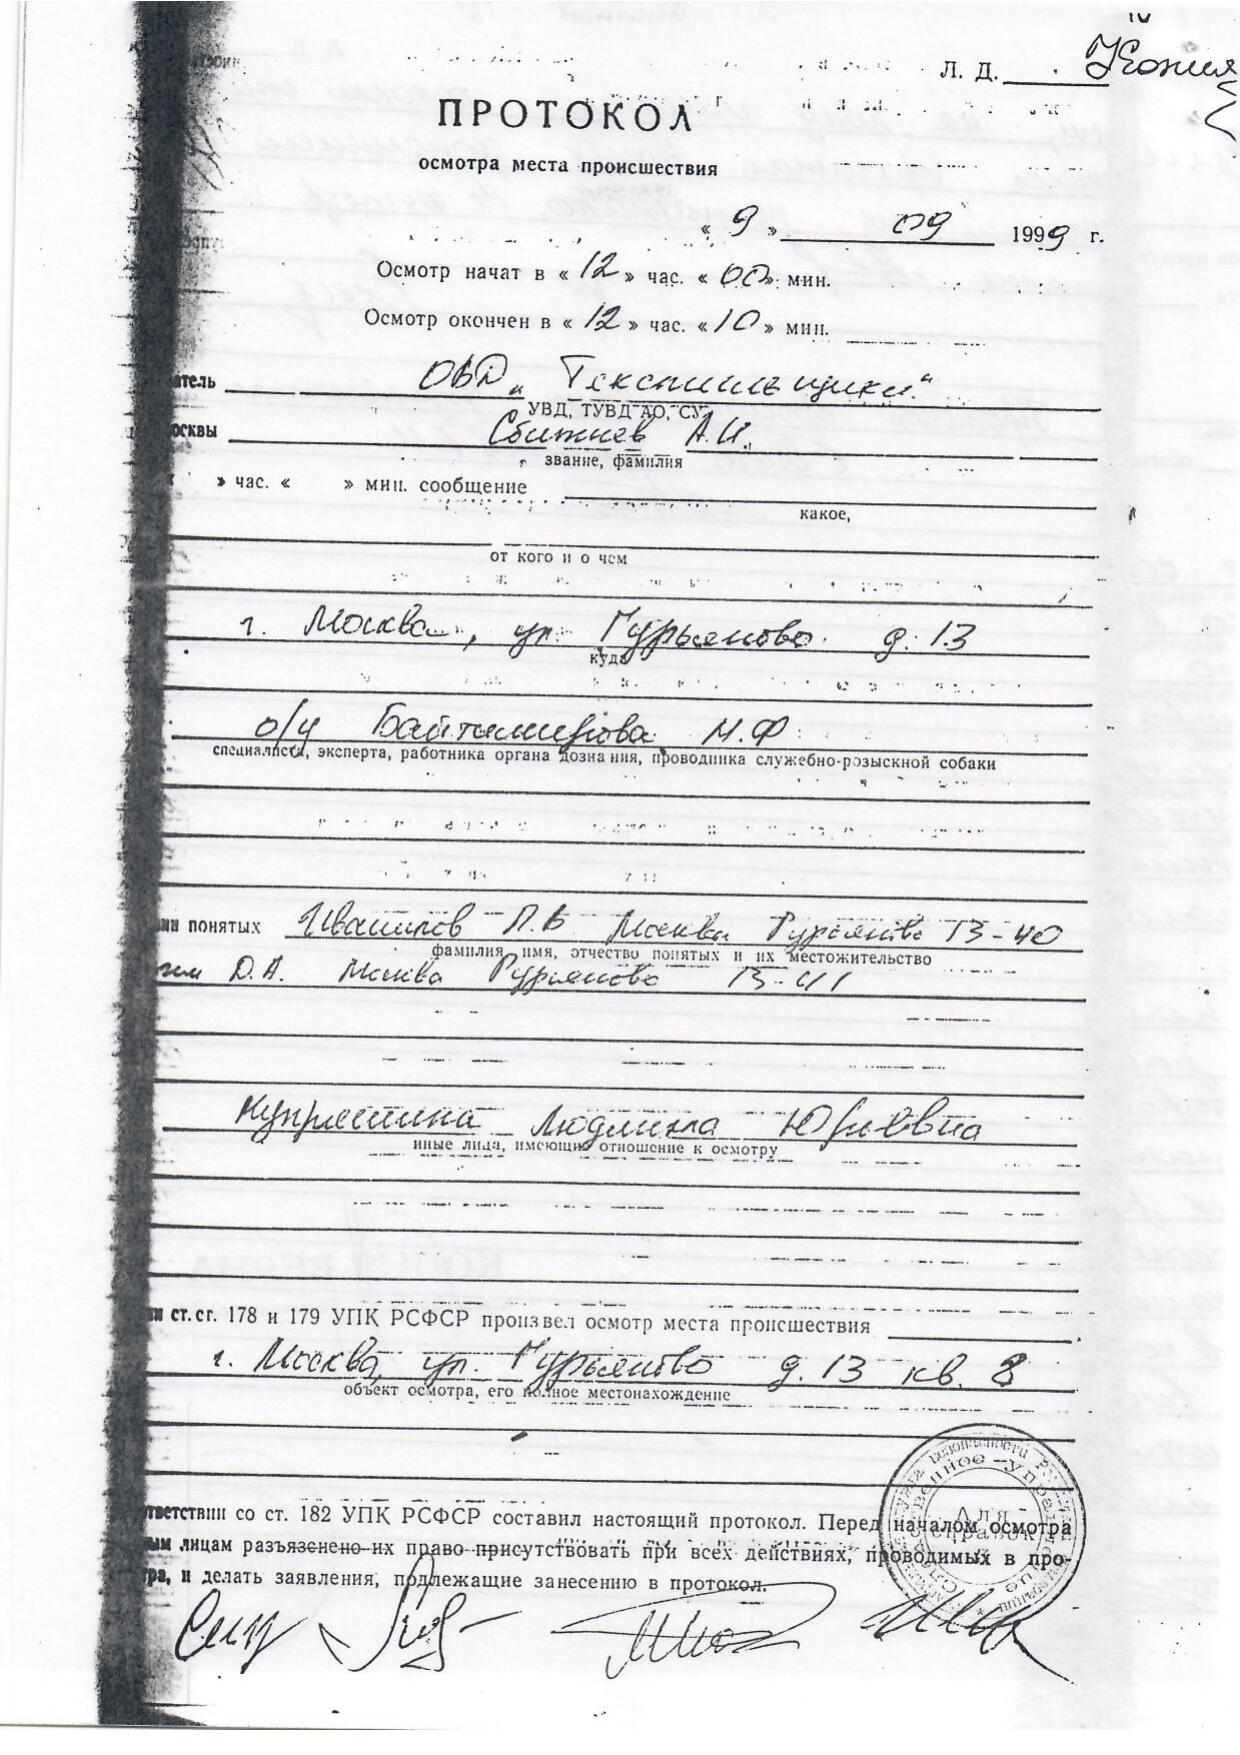 Л. Д. Копия
ПРОТОКОЛ
осмотра места происшествия
« 9 » 09 1999 г.
Осмотр начат в « 12 » час. « 00 » мин.
Осмотр окончен в « 12 » час. « 10 » мин.
атель ОВД „Текстильщики"
УВД, ТУВД АО, СУ
осквы Сбитнев А.И.
звание, фамилия
» час. « » мин. сообщение
какое,
от кого и о чем
г. Москва, ул. Гурьянова д. 13
куда
о/у Байтимирова М.Ф
специалиста, эксперта, работника органа дознания, проводника служебно-розыскной собаки
понятых Москва Гурьянова 13-40
фамилия, имя, отчество понятых и их местожительство
Д.А. Москва Гурьянова
Людмила Юрьевна
иные лица, имеющие отношение к осмотру
ст.ст. 178 и 179 УПК РСФСР произвел осмотр места происшествия
г. Москва, ул. Гурьянова д. 13 кв. 8
объект осмотра, его полное местонахождение
тветствии со ст. 182 УПК РСФСР составил настоящий протокол. Перед началом осмотра
ым лицам разъяснено их право присутствовать при всех действиях, проводимых в про-
ра, и делать заявления, подлежащие занесению в протокол.
Для справок